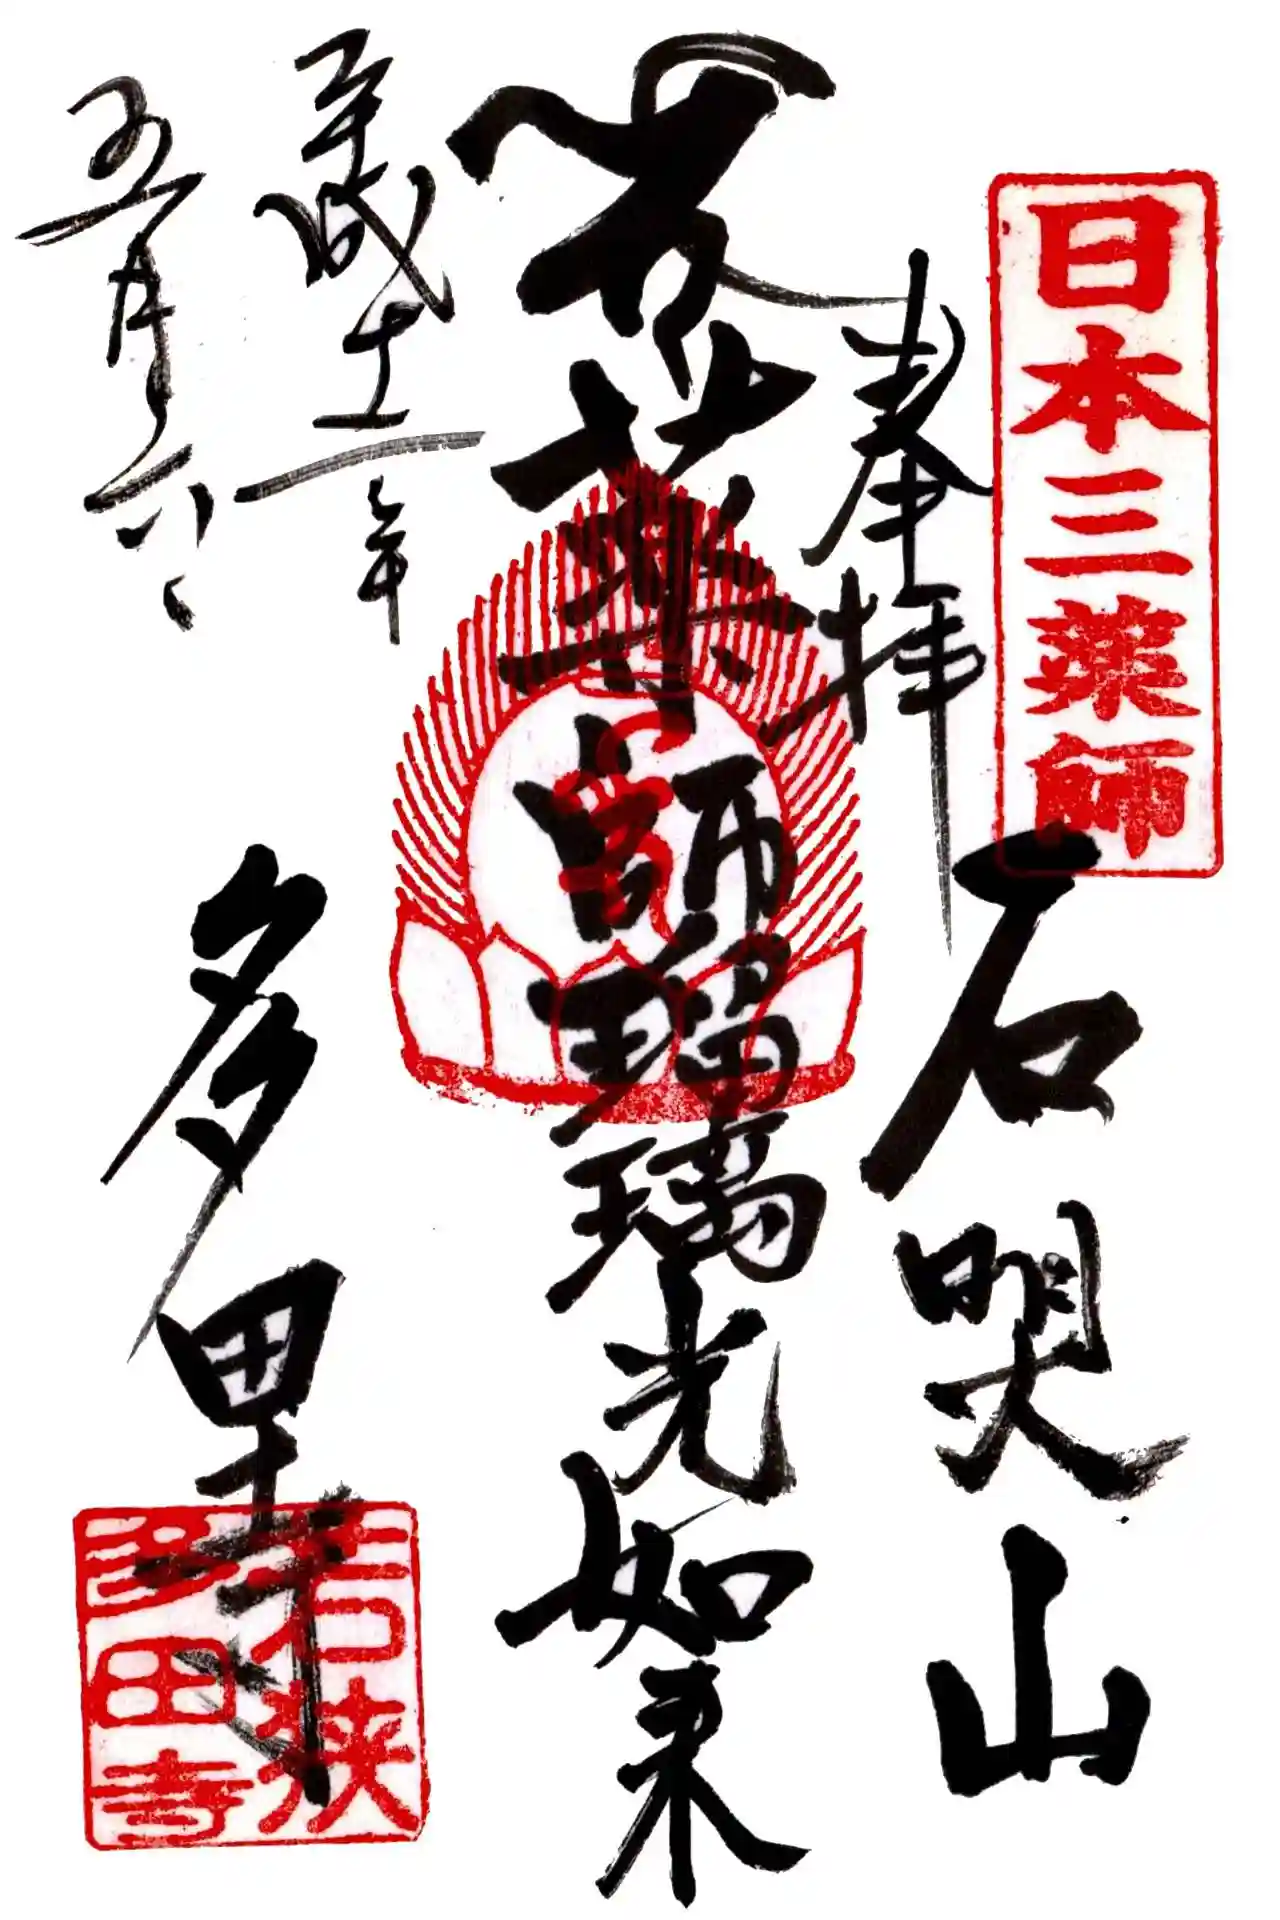 日本三薬師
奉拝
石
山
薬師瑠璃光如来
平成十二年
五月六日
多田寺
若狭
多田寺